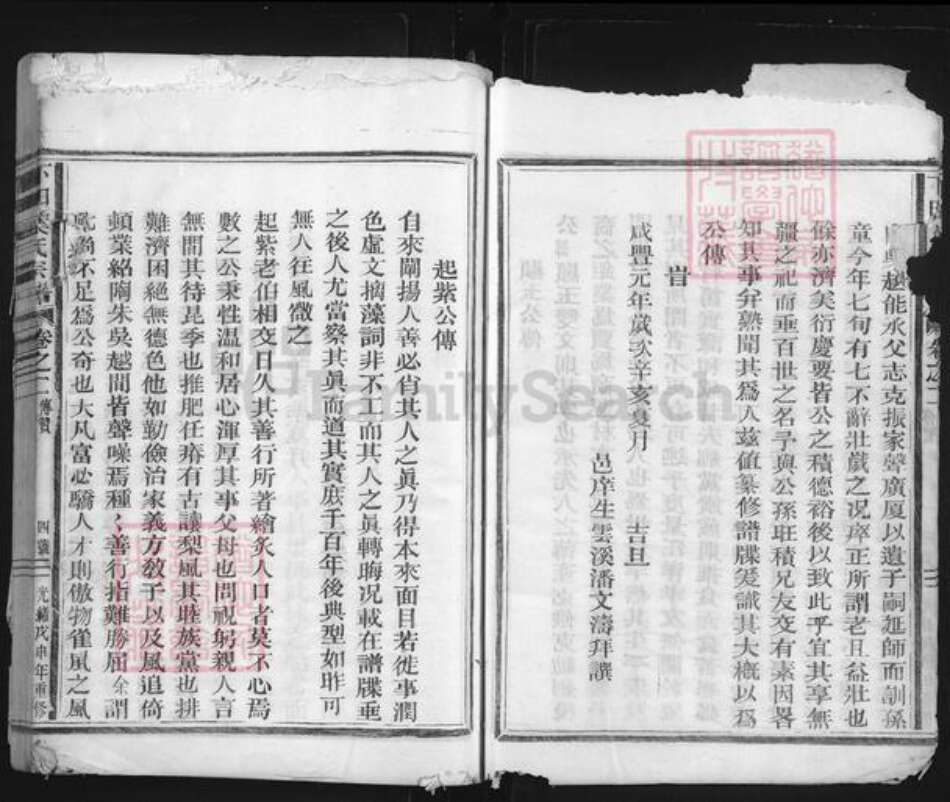 越能承父志克振家聲廣厦以遺子嗣延師而訓孫
童今年七旬有七不辭壯歲之况瘁正所謂老且益壯也
餘亦濟美衍慶要皆公之積德裕後以致此乎宜其享無
疆之祀而垂百世之名予與公孫班積兄友交有素因畧
知其事弁熟聞其爲人兹值纂修譜牒爰識其大概以爲
公傳
旹
咸豐元年歲次辛亥夏月 吉旦
邑庠生雲溪潘文濤拜譔
起紫公傳
自來闡揚人善必肖其人之眞乃得本來面目若徒事潤
色虛文摛藻詞非不工而其人之眞轉晦况載在譜牒垂
之後人尤當察其眞而適其實庶千百年後典型如昨可
無人往風微之
起紫老伯相交日久其善行所著繪炙人口者莫不心焉
數之公秉性温和居心渾厚其事父母也問視躬親人言
無間其待昆季也推肥任瘠有古讓梨風其睦族黨也排
難濟困絕無德色他如勤儉治家義方教子以及風追倚
頓業紹陶朱吳越間皆聲噪焉種〻善行指難勝屈余謂
不足爲公奇也大凡富必驕人才則傲物雀鼡之風
氏宗譜 卷之一 傳贊 四號 光緒戊申年重修
FamilySearch